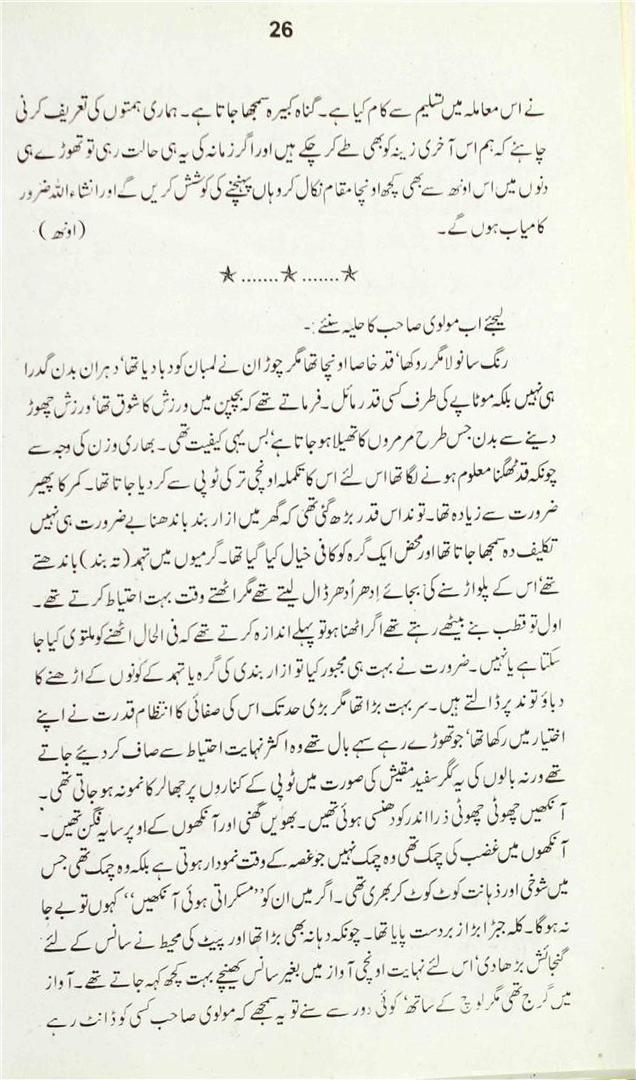 26
نے اس معاملہ میں تسلیم سے کام کیا ہے۔ گناہ کبیرہ سمجھا جاتا ہے۔ ہماری ہمتوں کی تعریف کرنی
چاہئے کہ ہم اس آخری زینہ کو بھی طے کر چکے ہیں اور اگر زمانہ کی یہ ہی حالت رہی تو تھوڑے ہی
دنوں میں اس اونھ سے بھی کچھ اونچا مقام نکال کر وہاں پہنچنے کی کوشش کریں گے اور انشاء اللہ ضرور
کامیاب ہوں گے۔ (اونھ)
★.......★.......★
لیجئے اب مولوی صاحب کا حلیہ سنئے :-
رنگ سانولا مگر روکھا، قد خاصا اونچا تھا مگر چوڑان نے لمبان کو دبا دیا تھا، دہران بدن گدرا
ہی نہیں بلکہ موٹاپے کی طرف کسی قدر مائل۔ فرماتے تھے کہ بچپن میں ورزش کا شوق تھا، ورزش چھوڑ
دینے سے بدن جس طرح مرمروں کا تھیلا ہو جاتا ہے، بس یہی کیفیت تھی۔ بھاری وزن کی وجہ سے
چونکہ قد ٹھگنا معلوم ہونے لگا تھا اس لئے اس کا تکملہ اونچی ترکی ٹوپی سے کر دیا جاتا تھا۔ کمر کا پھیر
ضرورت سے زیادہ تھا۔ توند اس قدر بڑھ گئی تھی کہ گھر میں ازار بند باندھنا بے ضرورت ہی نہیں
تکلیف دہ سمجھا جاتا تھا اور محض ایک گرہ کو کافی خیال کیا گیا تھا۔ گرمیوں میں تہمد (تہ بند) باندھتے
تھے، اس کے پلو اڑسنے کی بجائے اِدھر اُدھر ڈال لیتے تھے مگر اٹھتے وقت بہت احتیاط کرتے تھے۔
اول تو قطب بنے بیٹھے رہتے تھے اگر اٹھنا ہو تو پہلے اندازہ کرتے تھے کہ فی الحال اٹھنے کو ملتوی کیا جا
سکتا ہے یا نہیں۔ ضرورت نے بہت ہی مجبور کیا تو ازار بندی کی گرہ یا تہمد کے کونوں کے اڑھنے کا
دباؤ توند پر ڈالتے ہیں۔ سر بہت بڑا تھا مگر بڑی حد تک اس کی صفائی کا انتظام قدرت نے اپنے
اختیار میں رکھا تھا، جو تھوڑے رہے سہے بال تھے وہ اکثر نہایت احتیاط سے صاف کر دیئے جاتے
تھے ورنہ بالوں کی یہ گگر سفید مقیش کی صورت میں ٹوپی کے کناروں پر جھالر کا نمونہ ہو جاتی تھی۔
آنکھیں چھوٹی چھوٹی ذرا اندر کو دھنسی ہوئی تھیں۔ بھویں گھنی اور آنکھوں کے اوپر سایہ فگن تھیں۔
آنکھوں میں غضب کی چمک تھی وہ چمک نہیں جو غصہ کے وقت نمودار ہوتی ہے بلکہ وہ چمک تھی جس
میں شوخی اور ذہانت کوٹ کوٹ کر بھری تھی۔ اگر میں ان کو ”مسکراتی ہوئی آنکھیں“ کہوں تو بے جا
نہ ہوگا۔ کلہ جبڑا بڑا زبردست پایا تھا۔ چونکہ دہانہ بھی بڑا تھا اور پیٹ کی محیط نے سانس کے لئے
گنجائش بڑھا دی، اس لئے نہایت اونچی آواز میں بغیر سانس کھینچے بہت کچھ کہہ جاتے تھے۔ آواز
میں گرج تھی مگر لوچ کے ساتھ، کوئی دور سے سنے تو یہ سمجھے کہ مولوی صاحب کسی کو ڈانٹ رہے